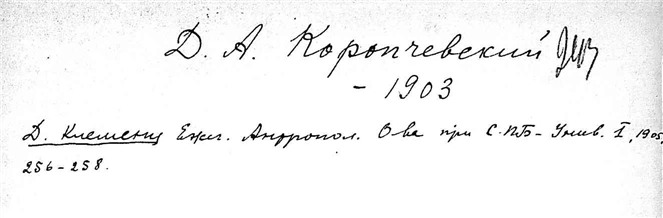 Д. А. Коропчевский
- 1903
Д. Клеменц Ежег. Антропол. О-ва при С.ПБ- Унив. I, 1905,
256-258.